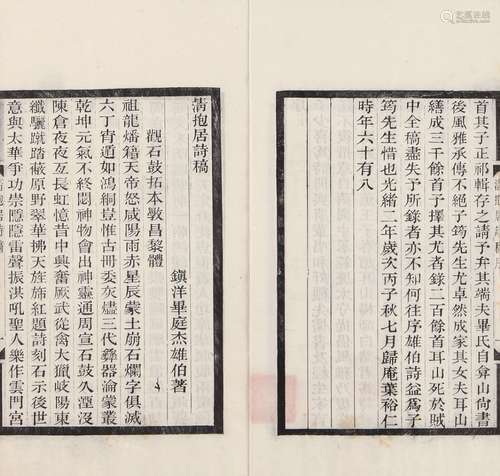 首其子正祁輯存之請予弁其端夫畢氏自弇山尚書
後風雅承傳不絕子筠先生尤卓然成家其女夫耳山
繕成三千餘首予擇其尤者錄二百餘首耳山死於賊
中全稿盡失予所錄者亦不知何往序雄伯詩益為子
筠先生惜也光緒二年歲次丙子秋七月歸庵葉裕仁
時年六十有八
清抱居詩稿
鎮洋畢庭杰雄伯著
觀石鼓拓本斆昌黎體
祖龍燔籍天帝怒咸陽雨赤星辰蒙土崩石爛字俱滅
六丁宵遁如鴻豈惟古冊委灰燼三代彝器淪蒙叢
乾坤元氣不終閟神物會出神靈通周宣石鼓久湮沒
陳倉夜夜互長虹憶昔中興奮厥武從禽大獵岐陽東
纖驪蹴踏蔽原野翠華拂天旌旆紅題詩刻石示後世
意與太華爭功崇隱隱雷聲振淇吼聖人樂作雲門宮